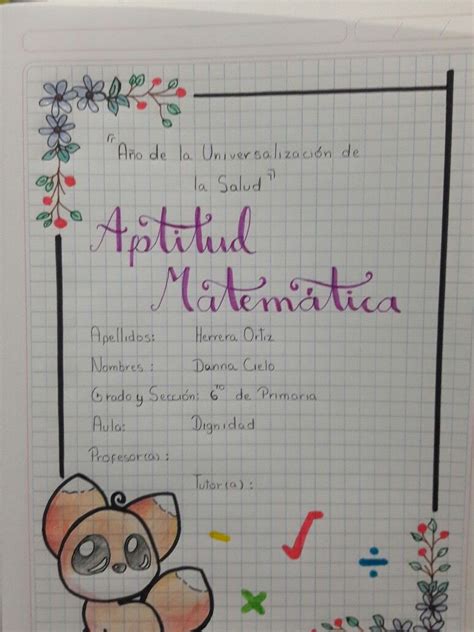 "Año de la Universalización de
la Salud"
Aptitud
Matemática
Apellidos: Herrera Ortiz
Nombres: Danna Cielo
Grado y Sección: 6to de Primaria
Aula: Dignidad
Profesor(a):
Tutor(a):
- √ ÷
×